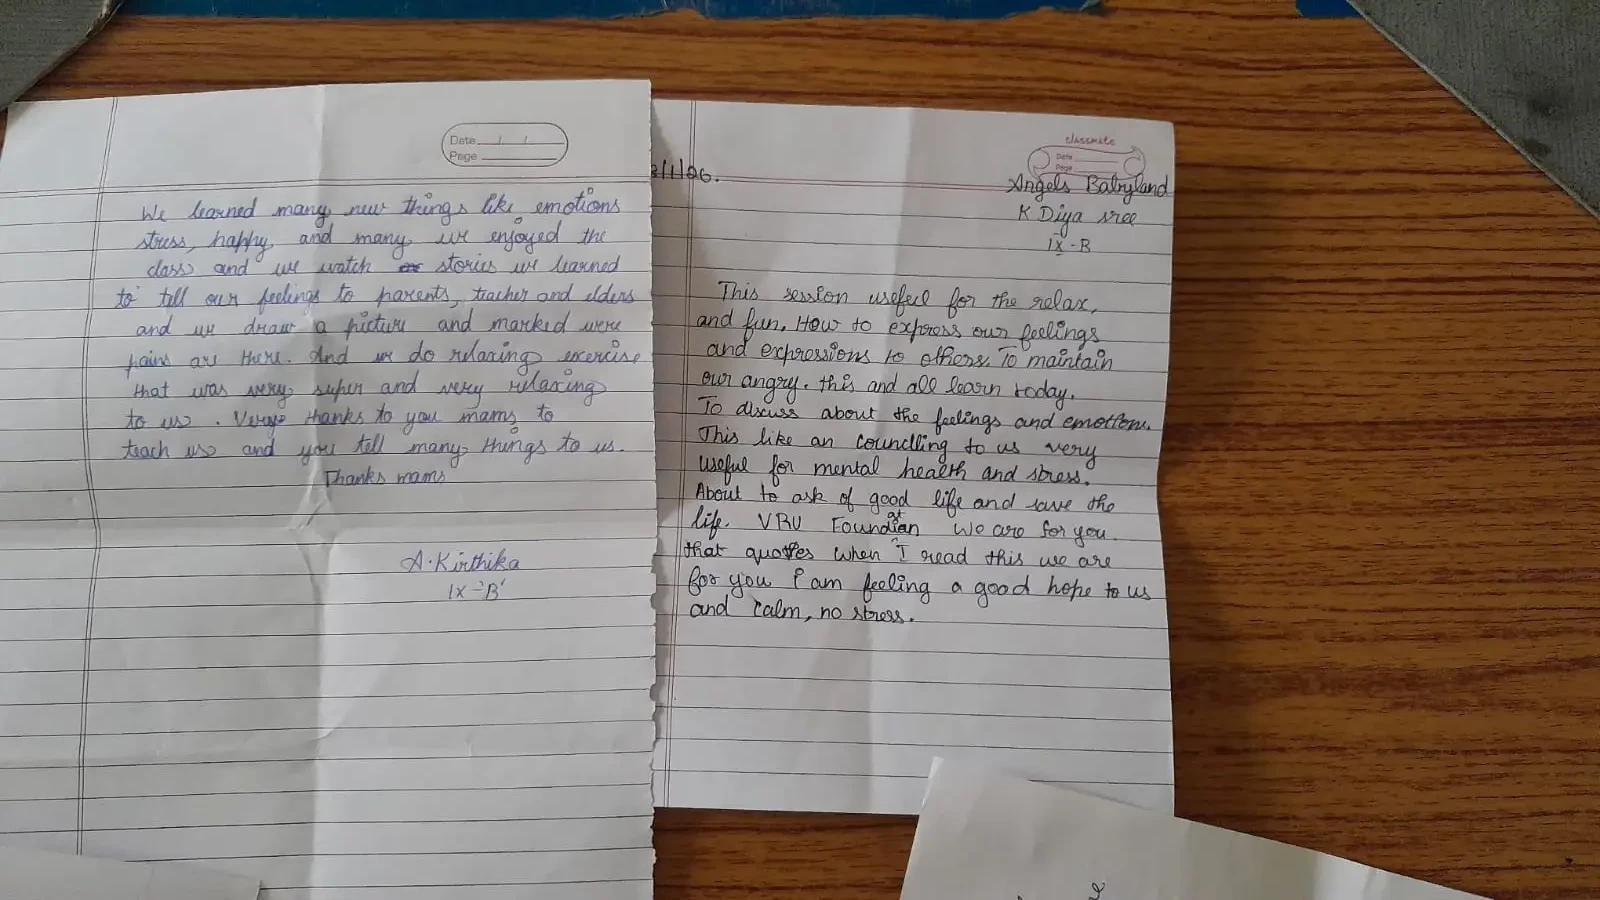 Date / /
Page
We learned many new things like emotions
stress, happy, and many we enjoyed the
class and we watch stories we learned
to tell our feelings to parents, teacher and elders
and we draw a picture and marked were
pains are there. And we do relaxing exercise
that was very super and very relaxing
to us. Very thanks to you mams to
teach us and you tell many things to us.
Thanks mams
A. Kirthika
IX-'B'
/1/26.
classmate
Date
Page
Angels Babyland
K Diya sree
IX-B
This session useful for the relax,
and fun. How to express our feelings
and expressions to others. To maintain
our angry. this and all learn today.
To discuss about the feelings and emotion.
This like an councling to us very
useful for mental health and stress.
About to ask of good life and save the
life. VRU Foundatian We are for you
that quotes when I read this we are
for you I am feeling a good hope to us
and calm, no stress.